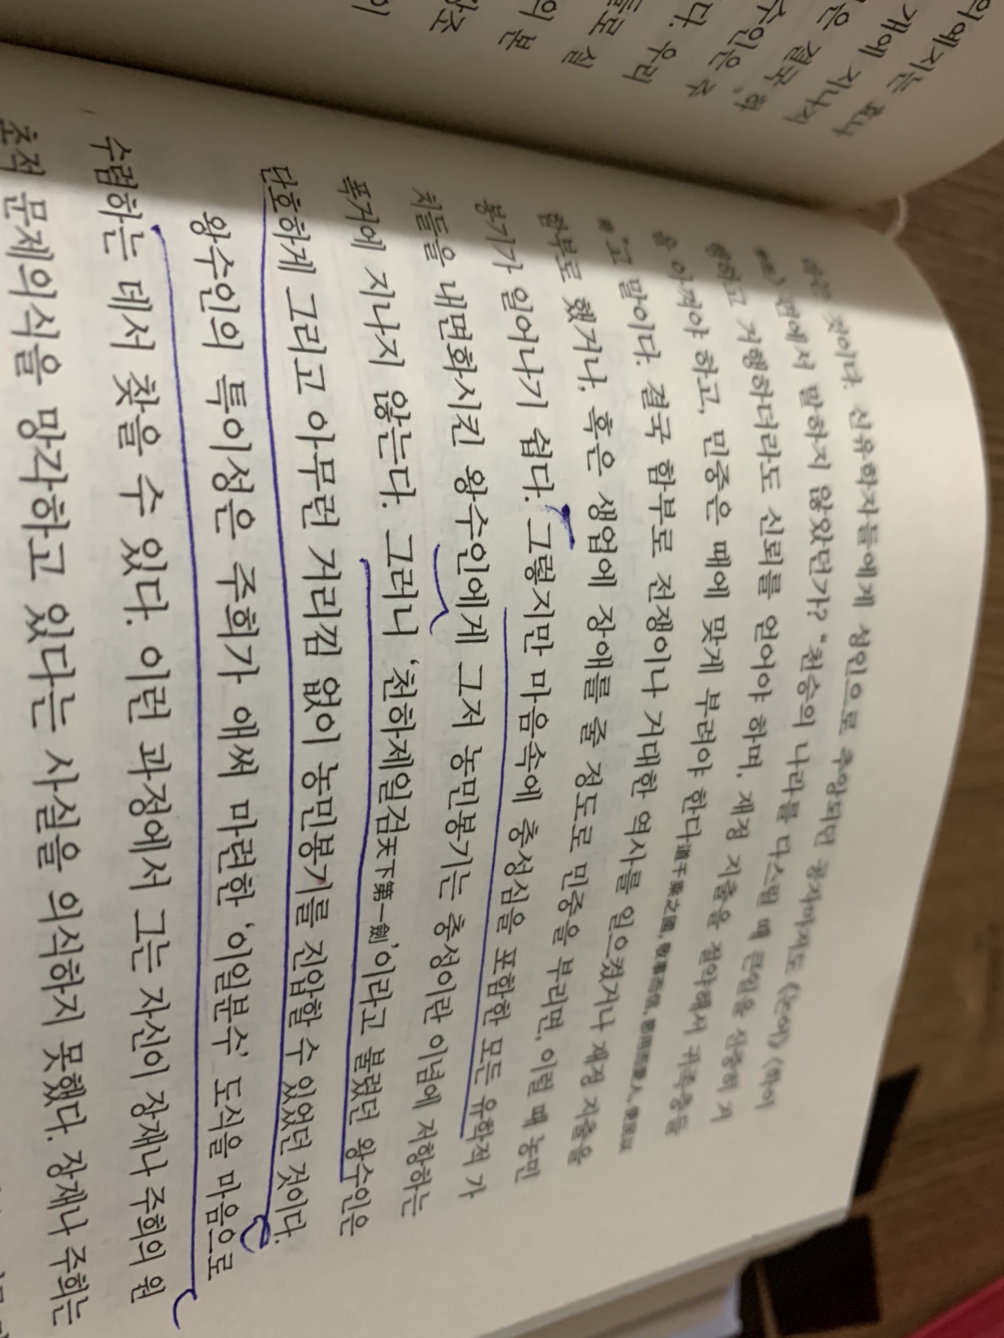 의 예지는 효
개에 지나지
은 결국, 하
수인은 주
다. 우리
들로 실
의 본
이
것이다. 신유학자들에게 성인으로 추앙되던 공자마저도 《논어》 〈학이
편에서 말하지 않았던가? "천승의 나라를 다스릴 때 큰일을 신중히 거
행하고 거행하더라도 신뢰를 얻어야 하며, 재정 지출을 절약해서 귀족층들
을 아껴야 하고, 민중은 때에 맞게 부려야 한다道千乘之國, 敬事而信, 節用而愛人, 使民以
고 말이다. 결국 함부로 전쟁이나 거대한 역사를 일으켰거나 재정 지출을
함부로 했거나, 혹은 생업에 장애를 줄 정도로 민중을 부리면, 이럴 때 농민
봉기가 일어나기 쉽다. 그렇지만 마음속에 충성심을 포함한 모든 유학적 가
치들을 내면화시킨 왕수인에게 그저 농민봉기는 충성이란 이념에 저항하는
폭거에 지나지 않는다. 그러니 '천하제일검天下第一劍'이라고 불렸던 왕수인은
단호하게 그리고 아무런 거리낌 없이 농민봉기를 진압할 수 있었던 것이다.
왕수인의 특이성은 주희가 애써 마련한 '이일분수' 도식을 마음으로
수렴하는 데서 찾을 수 있다. 이런 과정에서 그는 자신이 장재나 주희의 원
초적 문제의식을 망각하고 있다는 사실을 의식하지 못했다. 장재나 주희는